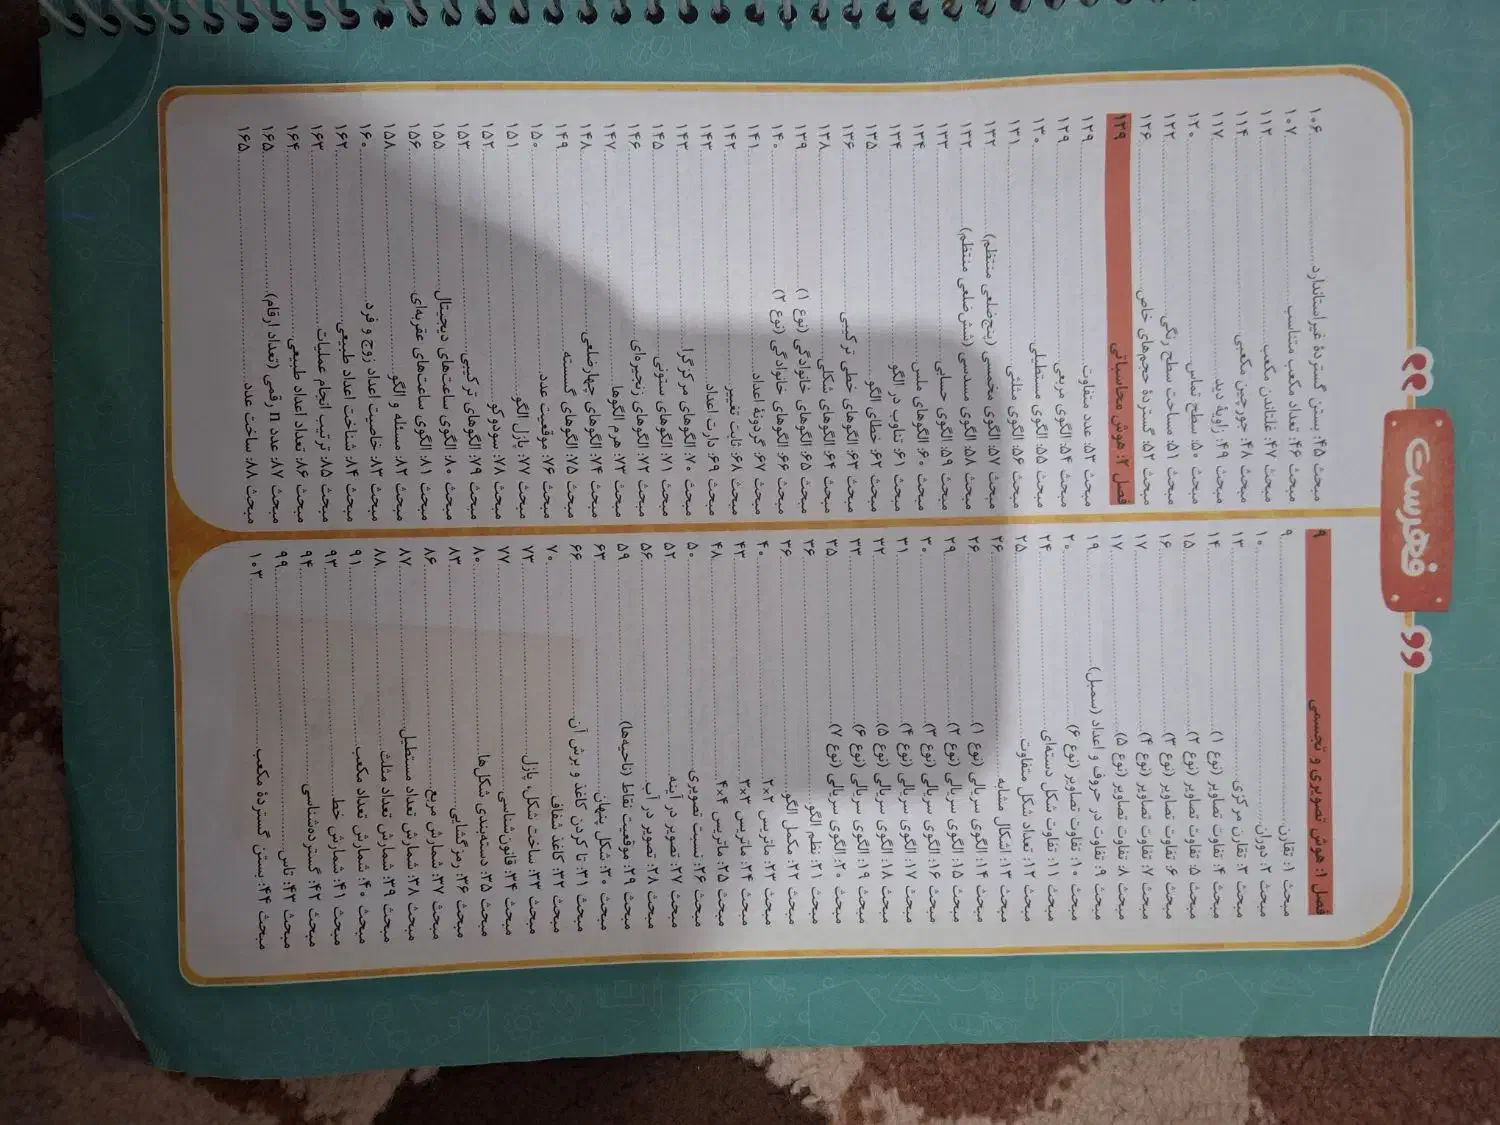 فهرست
فصل ۱: هوش تصویری و تجسمی ۹
مبحث ۱: تقارن ۹
مبحث ۲: دوران ۱۰
مبحث ۳: تقارن مرکزی ۱۳
مبحث ۴: تفاوت تصاویر (نوع ۱) ۱۴
مبحث ۵: تفاوت تصاویر (نوع ۲) ۱۵
مبحث ۶: تفاوت تصاویر (نوع ۳) ۱۶
مبحث ۷: تفاوت تصاویر (نوع ۴) ۱۷
مبحث ۸: تفاوت تصاویر (نوع ۵) ۱۷
مبحث ۹: تفاوت در حروف و اعداد (سمبل) ۱۹
مبحث ۱۰: تفاوت تصاویر (نوع ۶) ۲۰
مبحث ۱۱: تفاوت شکل دسته‌ای ۲۴
مبحث ۱۲: تعداد شکل متفاوت ۲۵
مبحث ۱۳: اشکال مشابه ۲۶
مبحث ۱۴: الگوی سریالی (نوع ۱) ۲۶
مبحث ۱۵: الگوی سریالی (نوع ۲) ۲۹
مبحث ۱۶: الگوی سریالی (نوع ۳) ۳۰
مبحث ۱۷: الگوی سریالی (نوع ۴) ۳۱
مبحث ۱۸: الگوی سریالی (نوع ۵) ۳۲
مبحث ۱۹: الگوی سریالی (نوع ۶) ۳۳
مبحث ۲۰: الگوی سریالی (نوع ۷) ۳۵
مبحث ۲۱: نظم الگو ۳۶
مبحث ۲۲: مکمل الگو ۳۶
مبحث ۲۳: ماتریس ۲×۲ ۴۰
مبحث ۲۴: ماتریس ۳×۳ ۴۳
مبحث ۲۵: ماتریس ۴×۴ ۴۸
مبحث ۲۶: نسبت تصویری ۵۰
مبحث ۲۷: تصویر در آینه ۵۲
مبحث ۲۸: تصویر در آب ۵۶
مبحث ۲۹: موقعیت نقاط (ناحیه‌ها) ۵۹
مبحث ۳۰: شکل پنهان ۶۳
مبحث ۳۱: تا کردن کاغذ و برش آن ۶۶
مبحث ۳۲: کاغذ شفاف ۷۰
مبحث ۳۳: ساخت شکل، پازل ۷۳
مبحث ۳۴: قانون‌شناسی ۷۷
مبحث ۳۵: دسته‌بندی شکل‌ها ۸۰
مبحث ۳۶: رمزگشایی ۸۳
مبحث ۳۷: شمارش مربع ۸۶
مبحث ۳۸: شمارش تعداد مستطیل ۸۷
مبحث ۳۹: شمارش تعداد مثلث ۸۸
مبحث ۴۰: شمارش تعداد مکعب ۹۱
مبحث ۴۱: شمارش خط ۹۳
مبحث ۴۲: گسترده‌شناسی ۹۴
مبحث ۴۳: تاس ۹۹
مبحث ۴۴: بستن گستردهٔ مکعب ۱۰۳
مبحث ۴۵: بستن گستردهٔ غیراستاندارد ۱۰۶
مبحث ۴۶: تعداد مکعب متناسب ۱۰۷
مبحث ۴۷: غلتاندن مکعب ۱۱۲
مبحث ۴۸: جورچین مکعبی ۱۱۴
مبحث ۴۹: زاویهٔ دید ۱۱۷
مبحث ۵۰: سطح تماس ۱۲۰
مبحث ۵۱: مساحت سطح رنگی ۱۲۲
مبحث ۵۲: گستردهٔ حجم‌های خاص ۱۲۶
فصل ۲: هوش محاسباتی ۱۲۹
مبحث ۵۳: عدد متفاوت ۱۲۹
مبحث ۵۴: الگوی مربعی ۱۲۹
مبحث ۵۵: الگوی مستطیلی ۱۳۰
مبحث ۵۶: الگوی مثلثی ۱۳۱
مبحث ۵۷: الگوی مخمسی (پنج‌ضلعی منتظم) ۱۳۲
مبحث ۵۸: الگوی مسدسی (شش‌ضلعی منتظم) ۱۳۳
مبحث ۵۹: الگوی حسابی ۱۳۳
مبحث ۶۰: الگوهای ملس ۱۳۴
مبحث ۶۱: تناوب در الگو ۱۳۴
مبحث ۶۲: خطای الگو ۱۳۵
مبحث ۶۳: الگوهای خطی ترکیبی ۱۳۶
مبحث ۶۴: الگوهای شکلی ۱۳۸
مبحث ۶۵: الگوهای خانوادگی (نوع ۱) ۱۳۹
مبحث ۶۶: الگوهای خانوادگی (نوع ۲) ۱۴۰
مبحث ۶۷: گردونهٔ اعداد ۱۴۱
مبحث ۶۸: ثابت تغییر ۱۴۲
مبحث ۶۹: دارت اعداد ۱۴۳
مبحث ۷۰: الگوهای مرکزگرا ۱۴۳
مبحث ۷۱: الگوهای ستونی ۱۴۵
مبحث ۷۲: الگوهای زنجیره‌ای ۱۴۶
مبحث ۷۳: هرم الگوها ۱۴۷
مبحث ۷۴: الگوهای چهارضلعی ۱۴۸
مبحث ۷۵: الگوهای گسسته ۱۴۹
مبحث ۷۶: موقعیت عدد ۱۵۰
مبحث ۷۷: پازل الگو ۱۵۱
مبحث ۷۸: سودوکو ۱۵۲
مبحث ۷۹: الگوهای ترکیبی ۱۵۳
مبحث ۸۰: الگوی ساعت‌های دیجیتال ۱۵۵
مبحث ۸۱: الگوی ساعت‌های عقربه‌ای ۱۵۶
مبحث ۸۲: مسئله و الگو ۱۵۸
مبحث ۸۳: خاصیت اعداد زوج و فرد ۱۶۰
مبحث ۸۴: شناخت اعداد طبیعی ۱۶۲
مبحث ۸۵: ترتیب انجام عملیات ۱۶۳
مبحث ۸۶: تعداد اعداد طبیعی ۱۶۴
مبحث ۸۷: عدد n رقمی (تعداد ارقام) ۱۶۵
مبحث ۸۸: ساخت عدد ۱۶۵